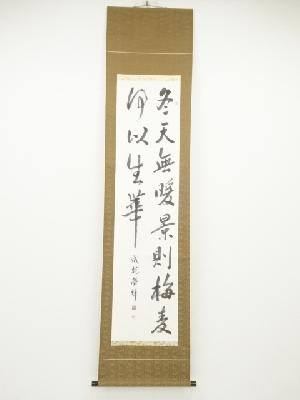 冬天無暖景則梅麦
何以生華